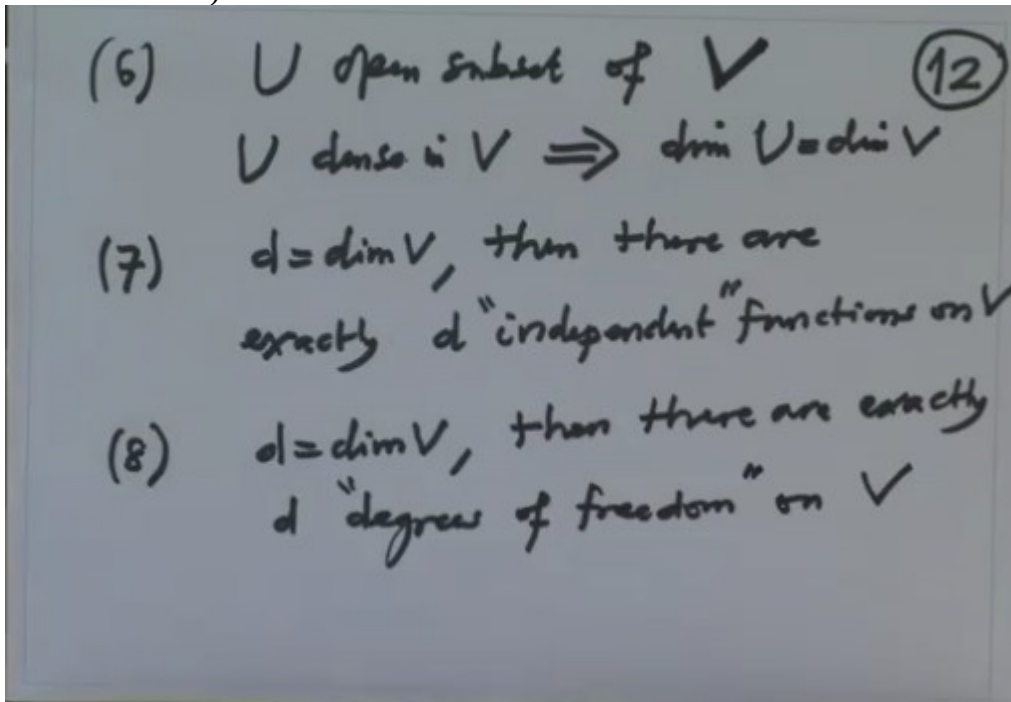 (6) U open subset of V (12)
U dense in V ⇒ dim U = dim V
(7) d = dim V, then there are
exactly d "independent" functions on V
(8) d = dim V, then there are exactly
d "degrees of freedom" on V